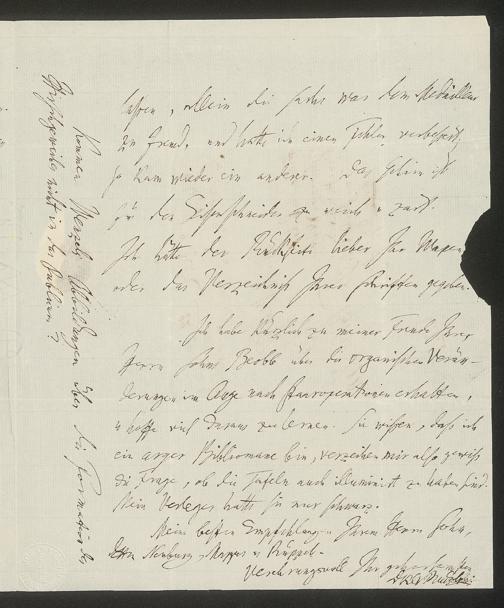 lassen, allein die Sache war dem Medailleur
zu fremd, und hatte ich einen Fehler verbessert,
so kam wieder ein anderer. Das Gehirn ist
für den Eisenschneider zu weich u zart.
Ich hätte der Rückseite lieber Ihr Wapen
oder das Verzeichniß Ihrer Schriften gegeben.
Ich habe kürzlich zu meiner Freude Ihres
Herrn Sohns Beobb über die organischen Verän-
derungen im Auge nach Staaroperationen erhalten,
u hoffe viel daraus zu lernen. Sie wissen, daß ich
ein arger Bibliomane bin, verzeihen mir also gewiß
die Frage, ob die Tafeln auch illuminirt zu haben sind.
Mein Verleger hatte sie nur schwarz.
Meine besten Empfehlungen Ihrem Herrn Sohn,
Herrn Neuburg, Mappes u Rüppel.
Verehrungsvoll Ihr gehorsamster
Kommen Wenzels Abbildungen über die Formation des
Hirschgeweihs nicht in den Buchhandel?